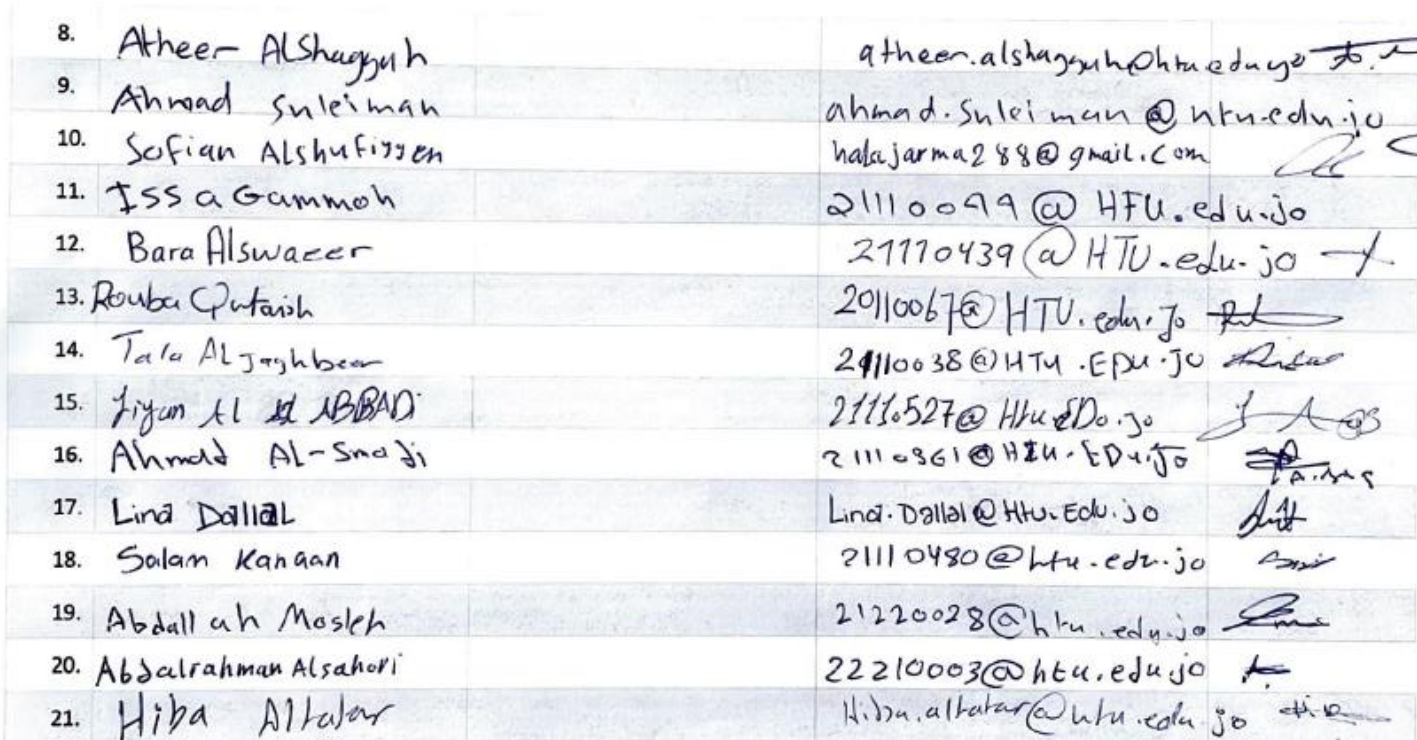 8. Atheer AlShagyuh atheer.alshagyuh@htu.edu.jo
9. Ahmad Suleiman ahmad.Suleiman@htu.edu.jo
10. Sofian Alshufiyyen halajarma288@gmail.com
11. Issa Gammoh 21110099@HTU.edu.jo
12. Bara Alswaeer 21110439@HTU.edu.jo
13. Rouba Qutaish 20110067@HTU.edu.Jo
14. Tala ALJaghbeer 21110038@HTU.EDU.JO
15. Liyan Al ABBADi 21110527@Htu.eDo.jo
16. Ahmad AL-Smadi 21110361@HTU.EDU.Jo
17. Lina Dallal Lina.Dallal@Htu.Edu.Jo
18. Salam Kanaan 21110480@htu.edu.jo
19. Abdallah Mosleh 21220028@htu.edu.jo
20. Abdalrahman Alsahori 22210003@htu.edu.jo
21. Hiba Altatar Hiba.altatar@htu.edu.jo